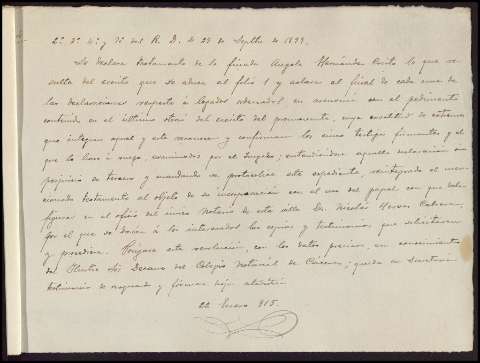 2º 3º 4º y 7º del R. D. de 25 de Septbe de 1899.
Se declara testamento de la finada Angela Hernández Osorio lo que re-
sulta del escrito que se aduce al folio 1 y aclara al final de cada una de
las declaraciones respecto a legados ordenados, en armonía con el pedimento
contenido en el último otrosí del escrito del promovente, cuya exactitud de extremos
que integran aquel y este reconocen y confirman los cinco testigos firmantes y el
que lo hace á ruego, examinados por el Juzgado; entendiéndose aquella declaración sin
perjuicio de tercero y mandando se protocolice este expediente, reintegrado el men-
cionado testamento al objeto de su incorporación con el uso del papel con que debe
figurar en el oficio del único Notario de esta villa Dn. Nicolás
por el que se darán á los interesados las copias y testimonios que solicitaren
y procedan. Póngase esta resolución, con los datos precisos, en conocimiento
del Ilustre Sr. Decano del Colegio Notarial de Cáceres; queda en Secretaría
testimonio de resguardo y fórmese hoja
22 Enero 915.